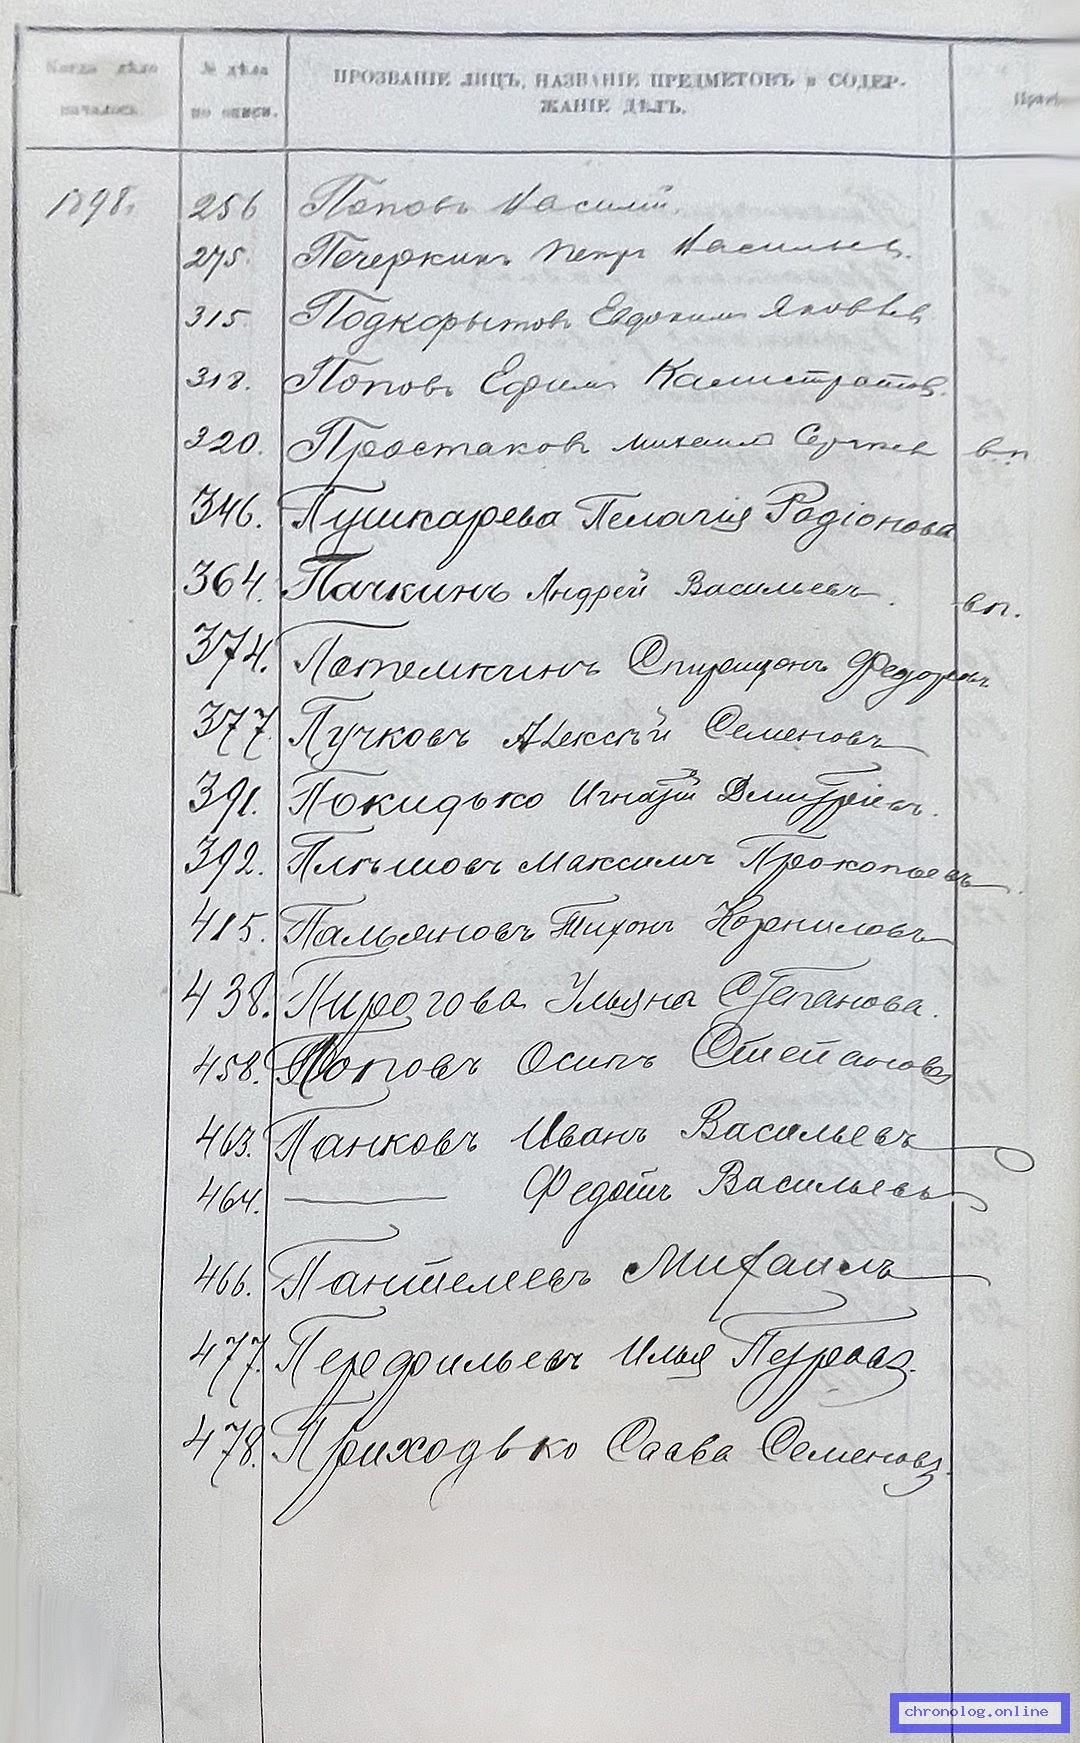 Когда дѣло началось
№ дѣла по описи.
ПРОЗВАНІЕ ЛИЦЪ, НАЗВАНІЕ ПРЕДМЕТОВЪ и СОДЕР-
ЖАНІЕ ДѢЛЪ.
1898. 256 Поповъ Василій.
275. Печеркинъ Петръ Васильев.
315 Подкорытовъ Евдокимъ Яковлев
318. Поповъ Ефимъ Калистратов.
320. Простаковъ Михаилъ Сергѣев вп.
346. Пушкарева Пелагія Родіонова
364. Пачкинъ Андрей Васильевъ. вп.
374. Потемкинъ Спиридонъ Федоровъ
377. Пучковъ Алексѣй Семеновъ
391. Покидько Игнатій Дмитріевъ.
392. Плѣшовъ Максимъ Прокопьевъ
415. Пальяновъ Тихонъ Корниловъ
438. Пирогова Ульяна Степанова.
458. Поповъ Осипъ Степановъ
463. Панковъ Иванъ Васильевъ
464. —— Федотъ Васильевъ
466. Пантелеевъ Михаилъ
477. Перфильевъ Илья Петровъ.
478. Приходько Савва Семеновъ.
chronolog.online